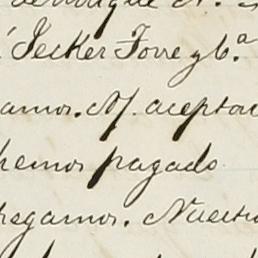 Jecker Torre y C.ª
amos. N/. aceptac
hemos pagado
regamos. Nuestro